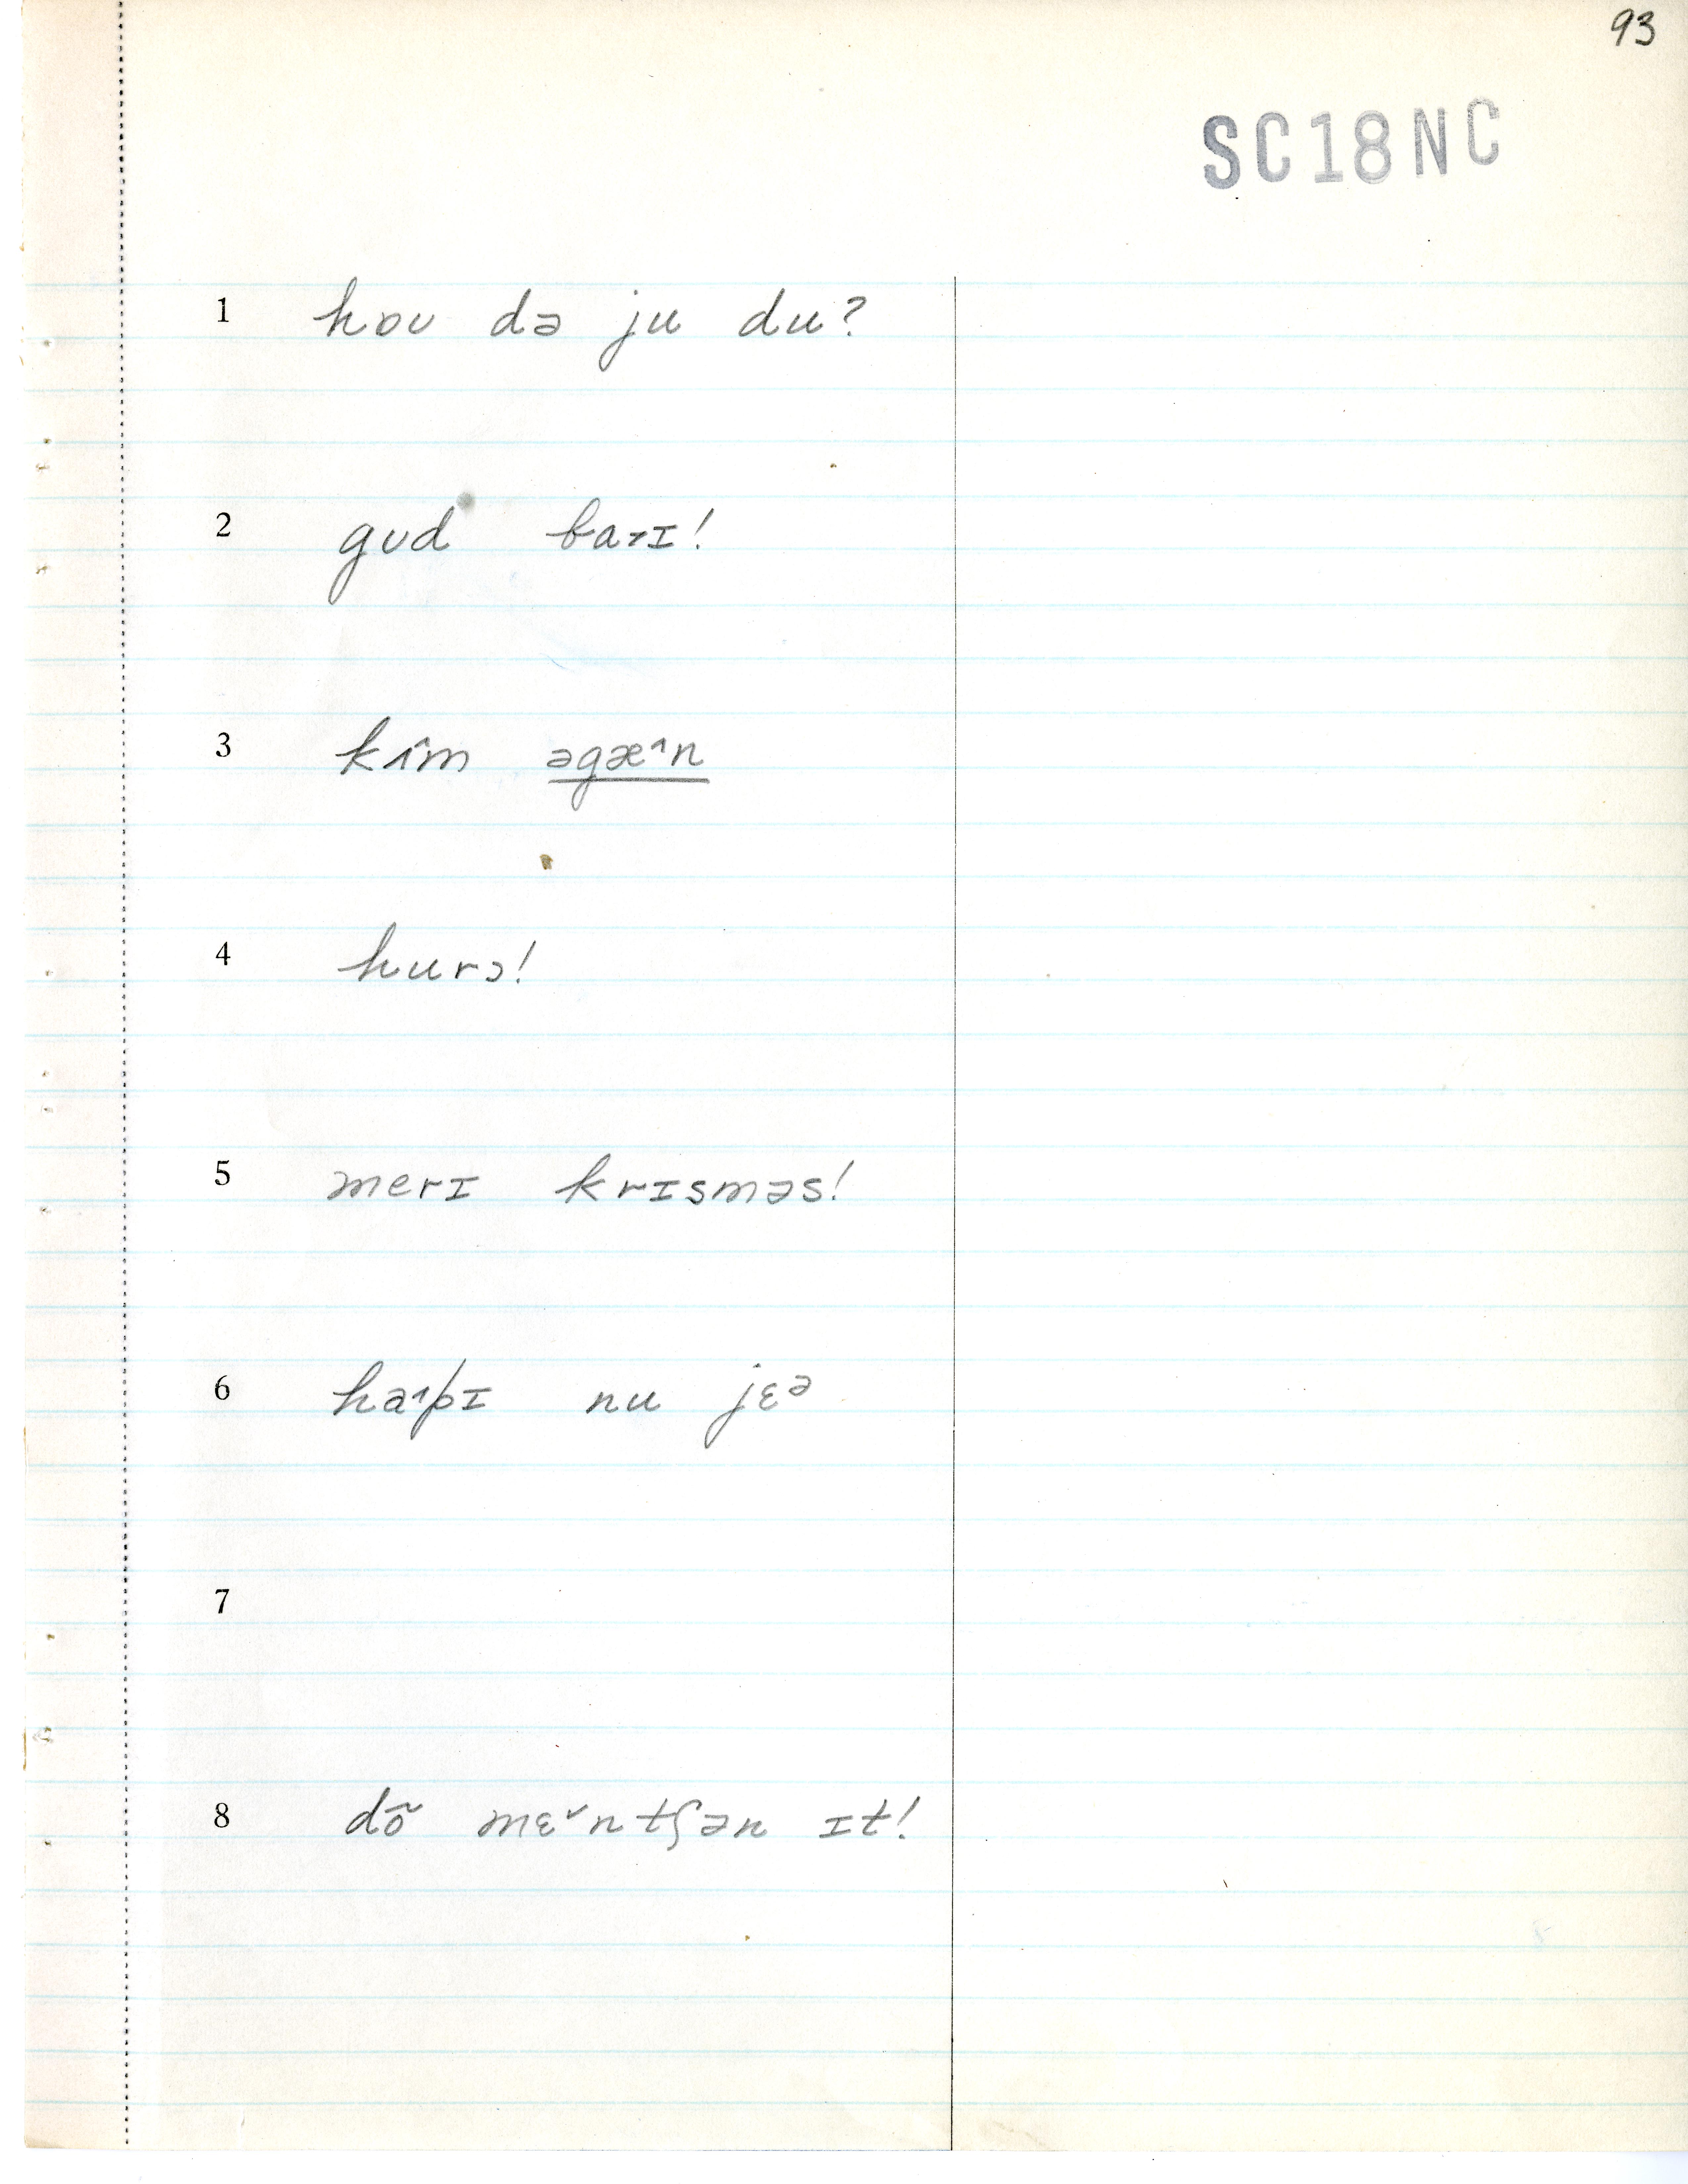 93
SC18NC
1 hɒʊ də ju du?
2 gʊd ba˃ɪ!
3 kɪ̂m əgæ˄n
4 hurɔ!
5 merɪ krɪsməs!
6 ha˄pɪ nu jɛᵊ
7
8 dõ mɛ˅ntʃən ɪt!